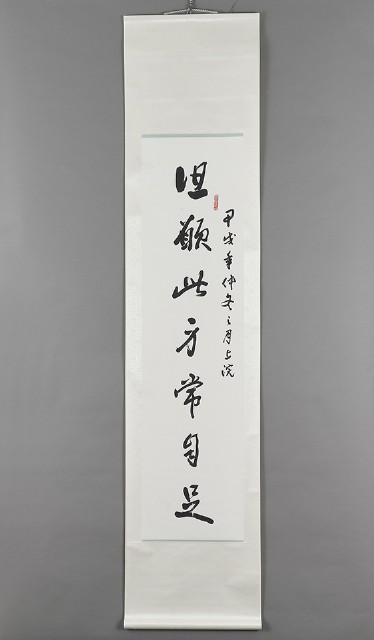 甲戌年仲冬之月上浣
但願此方常自足